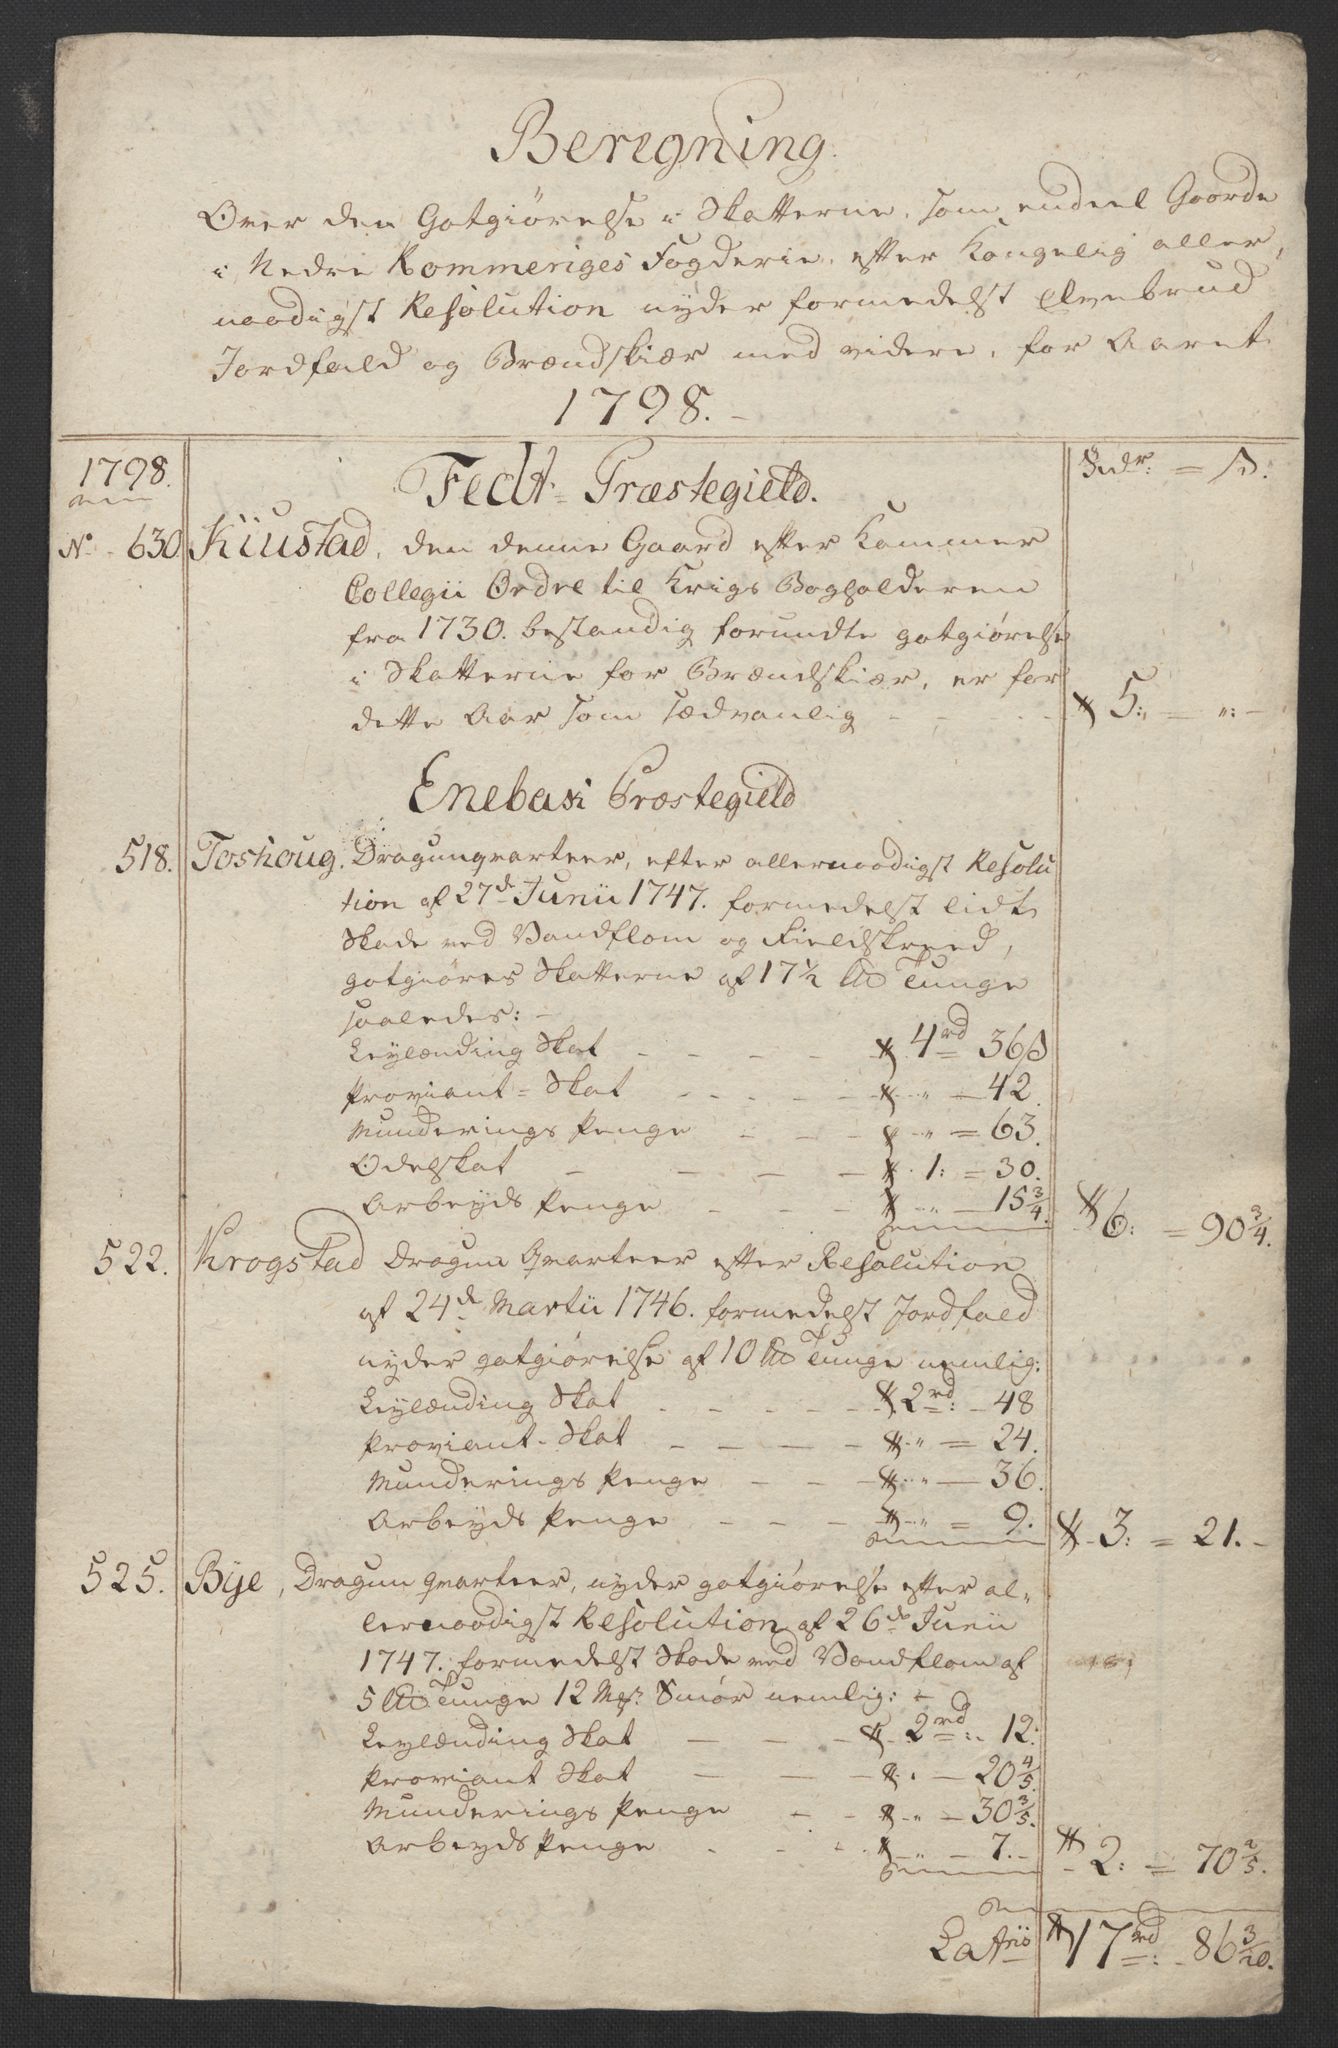 Beregning
Over den Gotgiørelse i Skatterne, som endeel Gaarde
i Nedre Rommeriges Fogderie, efter Kongelig aller,
naadigst Resolution nyder formedelst Elvebrud
Jordfald og Brændskiær med videre, for Aaret
1798.
1798. Fedt-Præstegield. Rdr: = ß.
No 630 Kiustad, den denne Gaard efter Kammer
Collegii Ordre til Krigs Bogholderen
fra 1730. bestandig forundte gotgiørelse
i Skatterne for Brændskiær, er for
dette Aar som sædvanlig - - - 5: = ": -
Enebak Præstegield
518. Toshoug. Dragunqvarteer, efter allernaadigst Resolu
tion af 27de Junii 1747. formedelst lidt
Skade ved Vandflom og Fieldskreed,
gotgiøres Skatterne af 17½ Tunge
saaledes: -
Leylænding Skat - - - - 4rd 36ß
Proviant = Skat - - - - " - 42.
Munderings Penge - - - " = 63.
Odelskat - - - - 1: = 30.
Arbeyds Penge - - - " - 15¾. 6: = 90¾.
522. Krogstad Dragun Qvarteer efter Resolution
af 24de Martii 1746. formedelst Jordfald
nyder gotgiørelse af 10 Tunge nemlig:
Leylænding Skat - - - - 2rd: - 48
Proviant - Skat - - - - " = 24.
Munderings Penge - - - " - 36.
Arbeyds Penge - - - " = 9. 3: = 21. -
525. Bye, Dragun Qvarteer, nyder gotgiørelse efter al-
lernaadigst Resolution af 26de Junii
1747. formedelst Skade ved Vandflom af
5 Tunge 12 Mrk: Smør nemlig: -
Leylænding Skat - - - 2rd: - 12:
Proviant Skat - - - " - 20 4/5.
Munderings Penge - - " - 30 3/5.
Arbeyds Penge - - - " - 7. - 2: = 70 2/5.
Latus 17rd: - 86 3/20.